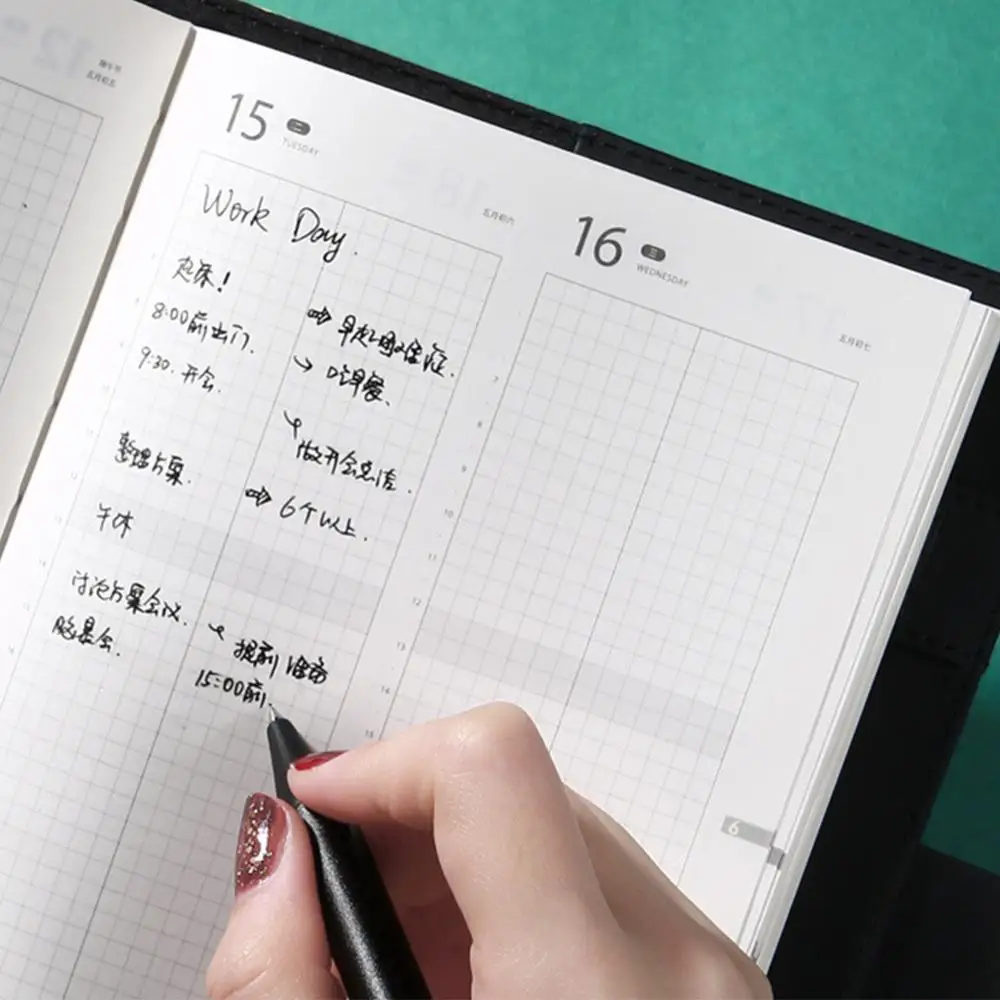 端午节
五月初五
15 二
TUESDAY
五月初六
Work Day.
起床!
8:00前出门.
吃早餐.
9:30.开会.
做开会总结.
整理方案.
6个以上.
午休
讨论方案会议.
提前准备
脑暴会.
15:00前
16 三
WEDNESDAY
五月初七
7
8
9
10
11
12
13
14
15
6